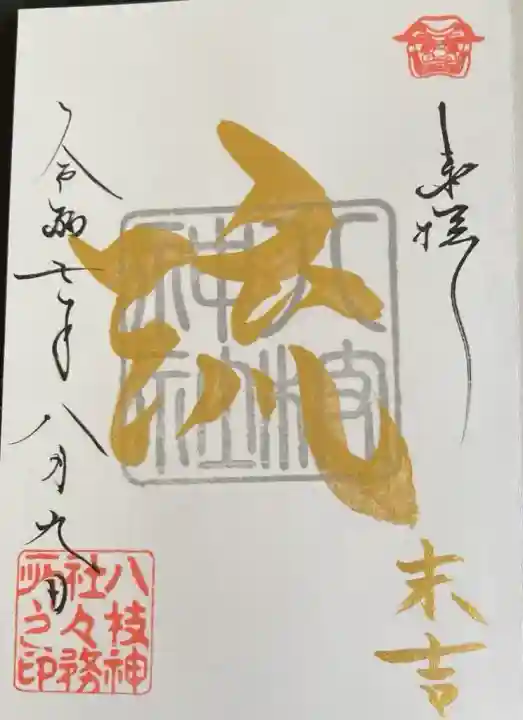 八枝
神社
流
末吉
令和七年八月九日
八枝神
社々務
所之印